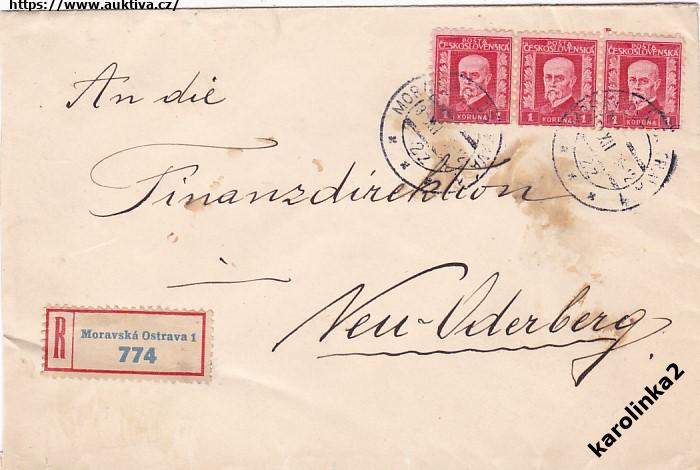 https://www.auktiva.cz/
POŠTA
ČESKOSLOVENSKÁ
1 KORUNA 1
POŠTA
ČESKOSLOVENSKÁ
1 KORUNA 1
POŠTA
ČESKOSLOVENSKÁ
1 KORUNA 1
An die
Finanzdirektion
in
Neu-Oderberg
R
Moravská Ostrava 1
774
karolinka2